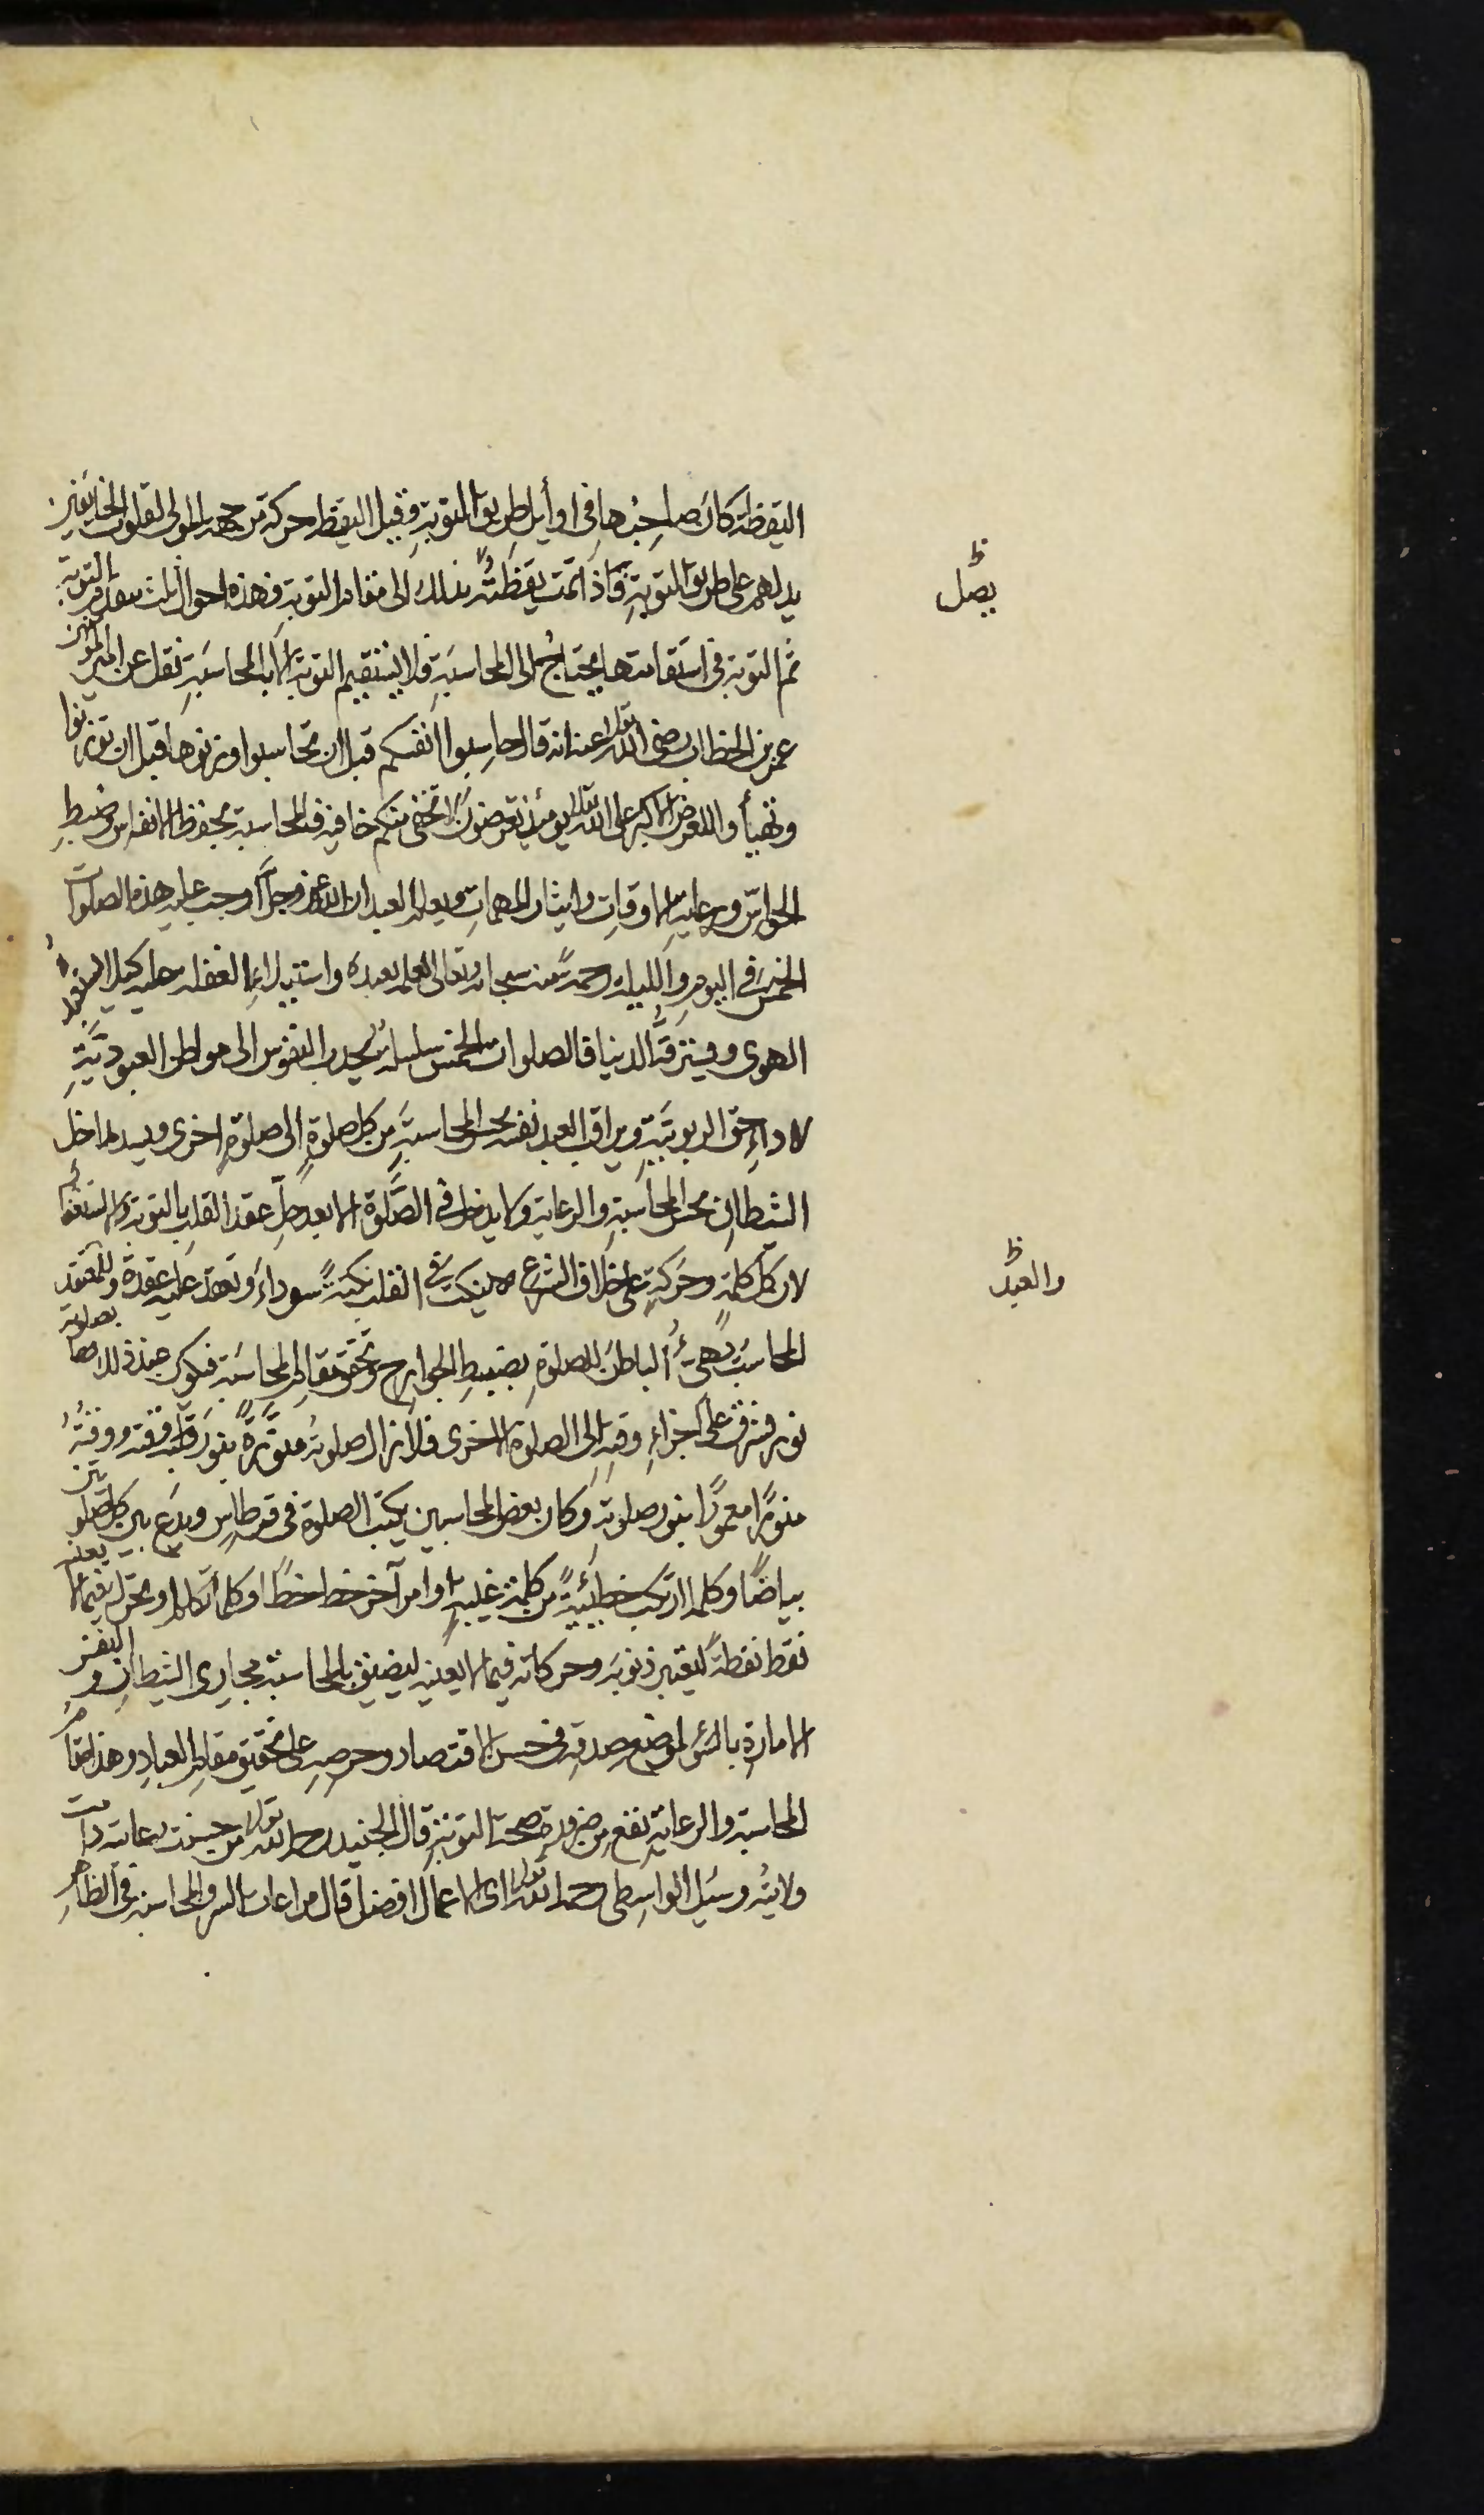 اليقظة كان صاحبها في اوايل طريق التوبة وقيل اليقظة حركة من جهة المولى لقلوب الخايفين
يدلهم على طريق التوبة فاذا تمت يقظته بذلك الى مقام التوبة فهذه احوال ثلث يتقدم التوبة
ثم التوبة في استقامتها يحتاج الى المحاسبة فلا يستقيم التوبة الا بالمحاسبة نقل عن امير المؤمنين
عمر بن الخطاب رضى الله تعالى عنه انه قال حاسبوا انفسكم قبل ان تحاسبوا وزنوها قبل ان توزنوا
وتهيأوا للعرض الاكبر على الله تعالى يومئذ تعرضون لا تخفى منكم خافية فالمحاسبة بحفظ الانفاس وضبط
الحواس ورعاية الاوقات وايثار المهمات ويعلم العبد ان الله عز وجل اوجب عليه هذه الصلوات
الخمس في اليوم والليلة رحمة منه سبحانه وتعالى لعلمه بعبده واستيلاء الغفلة عليه كيلا يستعبده
الهوى ويسترقه الدنيا فالصلوات الخمس سلسلة يجذب النفوس الى مواطن العبودية
لاداء حق الربوبية ويراقب العبد نفسه بحسن المحاسبة من كل صلوة الى صلوة اخرى ويسد مداخل
الشيطان بحسن المحاسبة والرعاية ولا يدخل في الصلوة الا بعد حل عقد القلب بالتوبة والاستغفار
لان كل كلمة وحركة على خلاف الشرع ينكت في القلب نكتة سوداء وتعقد عليه عقدة وللمتفقد
المحاسب يهيئ الباطن للصلوة بضبط الجوارح وتحقق مقام المحاسبة فيكون عند ذلك لصلوته
نور يشرق على اجزاء وقته الى الصلوة الاخرى فلا تزال صلوته منورة بنور وقته ووقته
منورا معمورا بنور صلوته وكان بعض المحاسبين يكتب الصلوة في قرطاس ويدع بين كل صلوتين
بياضا وكلما ارتكب خطيئة من كلمة غيبة او امر آخر خط خطا وكلما تكلم او تحرك فيما لا يعنيه
نقط نقطة ليعتبر ذنوبه وحركاته فيما لا يعنيه ليضيق بالمحاسبة مجارى الشيطان والنفس
الامارة بالسوء لموضع صدقه في حسن الاقتصاد وحرصه على تحقيق مقام العباد وهذا مقام
المحاسبة والرعاية يقع من ضرورة صحة التوبة قال الجنيد رحمه الله تعالى من حسنت رعايته دامت
ولايته وسئل الواسطى رحمه الله تعالى اى الاعمال افضل قال مراعات السر والمحاسبة في الظاهر
ظ
يصل
ظ
والعبد